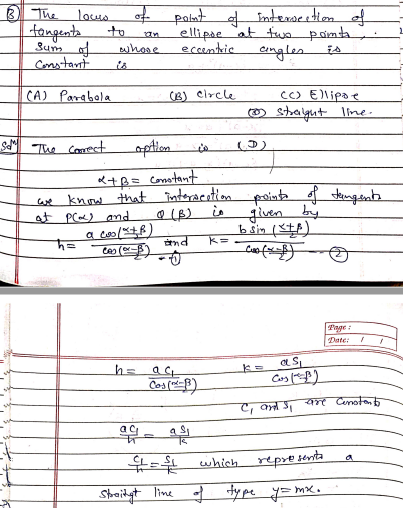 ③ The locus of point of intersection of
tangents to an ellipse at two points,
sum of whose eccentric angles is
constant is
(A) Parabola (B) circle (C) Ellipse
(D) straight line.
Solⁿ The correct option is (D)
α+β = constant
we know that intersection points of tangents
at P(α) and Q(β) is given by
h = a cos(α+β/2) / cos(α-β/2) —① and k = b sin(α+β/2) / cos(α-β/2) —②
Page :
Date: / /
h = aC₁ / cos(α-β/2) k = aS₁ / cos(α-β/2)
C₁ and S₁ are constants
aC₁/h = aS₁/k
C₁/h = S₁/k which represents a
straight line of type y=mx.